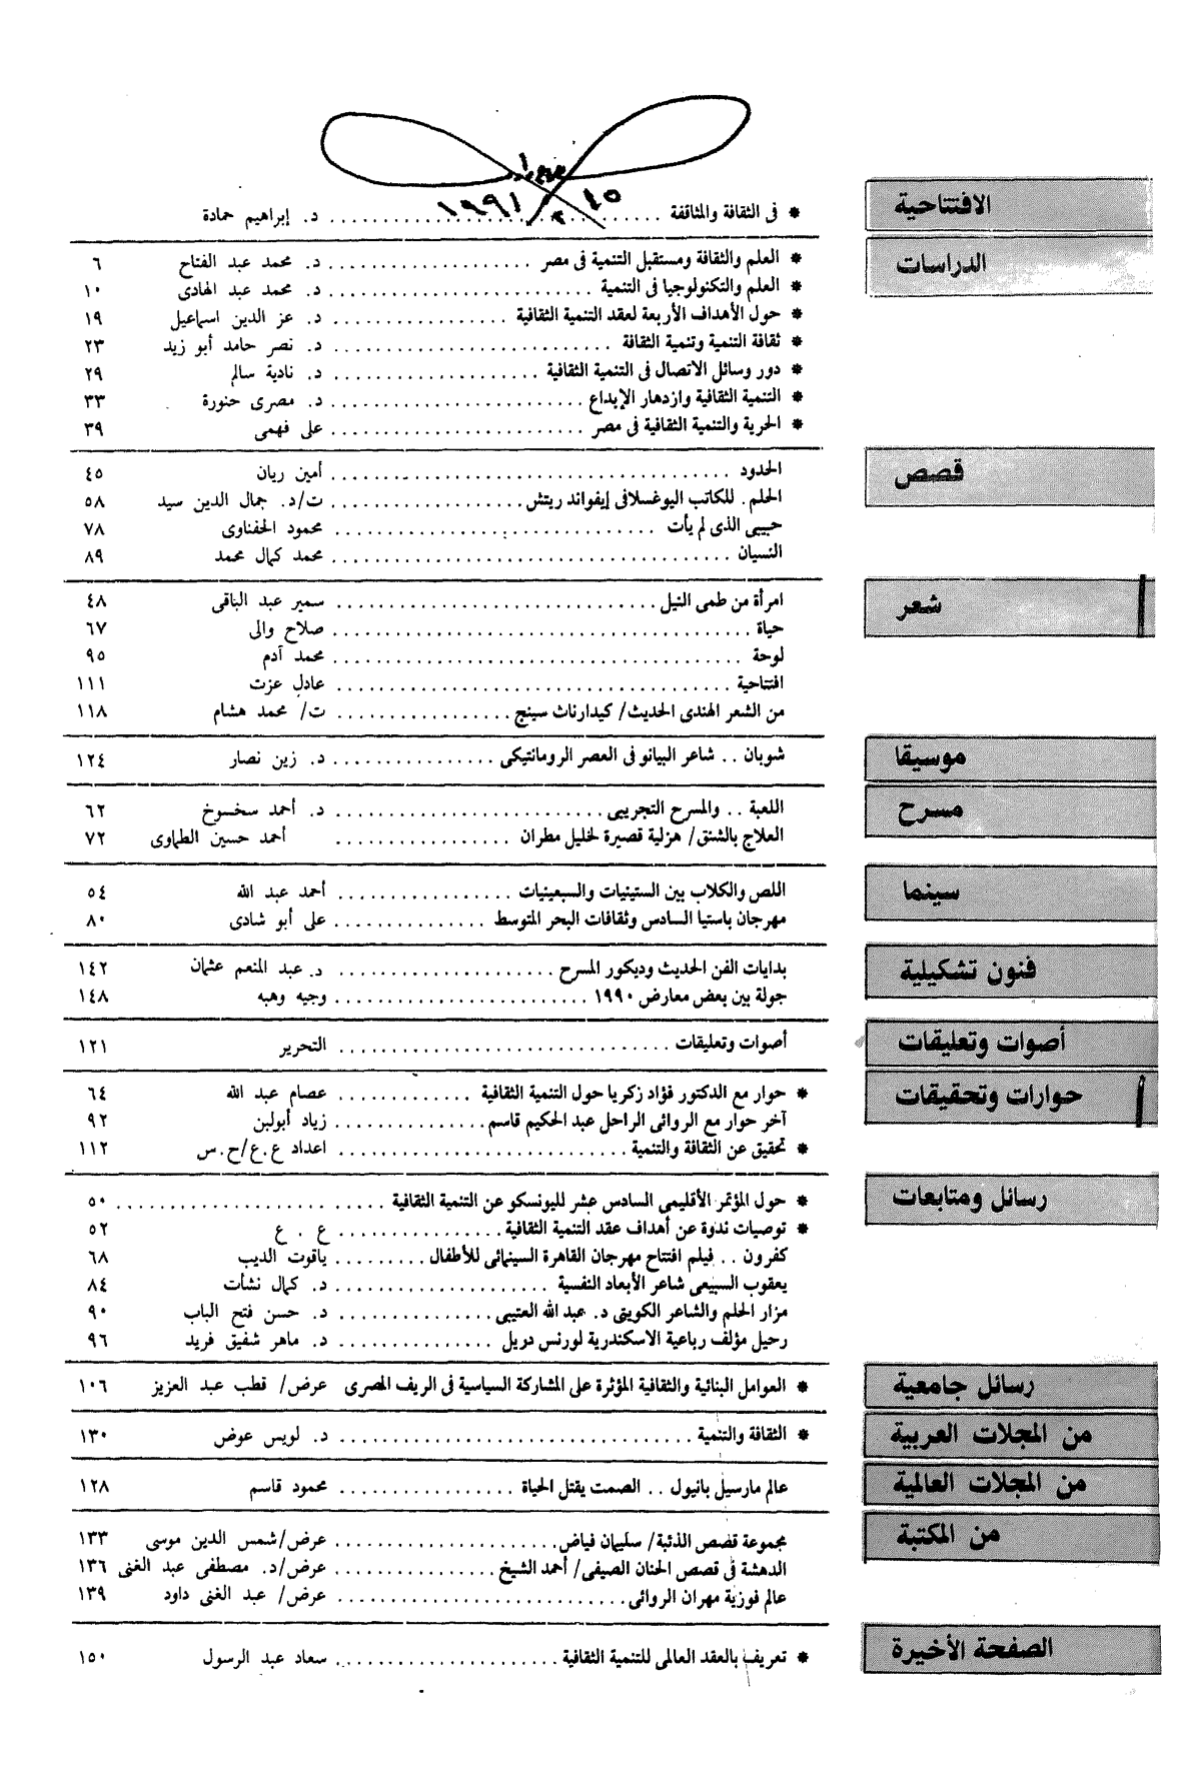 ١٩٩١
الافتتاحية
* فى الثقافة والمثاقفة .......... د. إبراهيم حمادة
الدراسات
* العلم والثقافة ومستقبل التنمية فى مصر .......... د. محمد عبد الفتاح ٦
* العلم والتكنولوجيا فى التنمية .......... د. محمد عبد الهادى ١٠
* حول الأهداف الأربعة لعقد التنمية الثقافية .......... د. عز الدين اسماعيل ١٩
* ثقافة التنمية وتنمية الثقافة .......... د. نصر حامد أبو زيد ٢٣
* دور وسائل الاتصال فى التنمية الثقافية .......... د. نادية سالم ٢٩
* التنمية الثقافية وازدهار الإبداع .......... د. مصرى حنورة ٣٣
* الحرية والتنمية الثقافية فى مصر .......... على فهمى ٣٩
قصص
الحدود .......... أمين ريان ٤٥
الحلم. للكاتب اليوغسلافى إيفواند ريتش .......... ت/د. جمال الدين سيد ٥٨
حبيبى الذى لم يأت .......... محمود الحفناوى ٧٨
النسيان .......... محمد كمال محمد ٨٩
شعر
امرأة من طمى النيل .......... سمير عبد الباقى ٤٨
حياة .......... صلاح والى ٦٧
لوحة .......... محمد آدم ٩٥
افتتاحية .......... عادل عزت ١١١
من الشعر الهندى الحديث/ كيدارناث سينج .......... ت/ محمد هشام ١١٨
موسيقا
شوبان .. شاعر البيانو فى العصر الرومانتيكى .......... د. زين نصار ١٢٤
مسرح
اللعبة .. والمسرح التجريبى .......... د. أحمد سخسوخ ٦٢
العلاج بالشنق/ هزلية قصيرة لخليل مطران .......... أحمد حسين الطماوى ٧٢
سينما
اللص والكلاب بين الستينيات والسبعينيات .......... أحمد عبد الله ٥٤
مهرجان باستيا السادس وثقافات البحر المتوسط .......... على أبو شادى ٨٠
فنون تشكيلية
بدايات الفن الحديث وديكور المسرح .......... د. عبد المنعم عثمان ١٤٢
جولة بين بعض معارض ١٩٩٠ .......... وجيه وهبه ١٤٨
أصوات وتعليقات
أصوات وتعليقات .......... التحرير ١٢١
حوارات وتحقيقات
* حوار مع الدكتور فؤاد زكريا حول التنمية الثقافية .......... عصام عبد الله ٦٤
آخر حوار مع الروائى الراحل عبد الحكيم قاسم .......... زياد أبولبن ٩٢
* تحقيق عن الثقافة والتنمية .......... اعداد ع.ع/ح.س ١١٢
رسائل ومتابعات
* حول المؤتمر الأقليمى السادس عشر لليونسكو عن التنمية الثقافية .......... ٥٠
* توصيات ندوة عن أهداف عقد التنمية الثقافية .......... ع . ع ٥٢
كفرون .. فيلم افتتاح مهرجان القاهرة السينمائى للأطفال .......... ياقوت الديب ٦٨
يعقوب السبيعى شاعر الأبعاد النفسية .......... د. كمال نشأت ٨٤
مزار الحلم والشاعر الكويتى د. عبد الله العتيبى .......... د. حسن فتح الباب ٩٠
رحيل مؤلف رباعية الاسكندرية لورنس دويل .......... د. ماهر شفيق فريد ٩٦
رسائل جامعية
* العوامل البنائية والثقافية المؤثرة على المشاركة السياسية فى الريف المصرى عرض/ قطب عبد العزيز ١٠٦
من المجلات العربية
* الثقافة والتنمية .......... د. لويس عوض ١٣٠
من المجلات العالمية
عالم مارسيل بانيول .. الصمت يقتل الحياة .......... محمود قاسم ١٢٨
من المكتبة
مجموعة قصص الذئبة/ سليمان فياض .......... عرض/شمس الدين موسى ١٣٣
الدهشة فى قصص الحنان الصيفى/ أحمد الشيخ .......... عرض/د. مصطفى عبد الغنى ١٣٦
عالم فوزية مهران الروائى .......... عرض/ عبد الغنى داود ١٣٩
الصفحة الأخيرة
* تعريف بالعقد العالمى للتنمية الثقافية .......... سعاد عبد الرسول ١٥٠